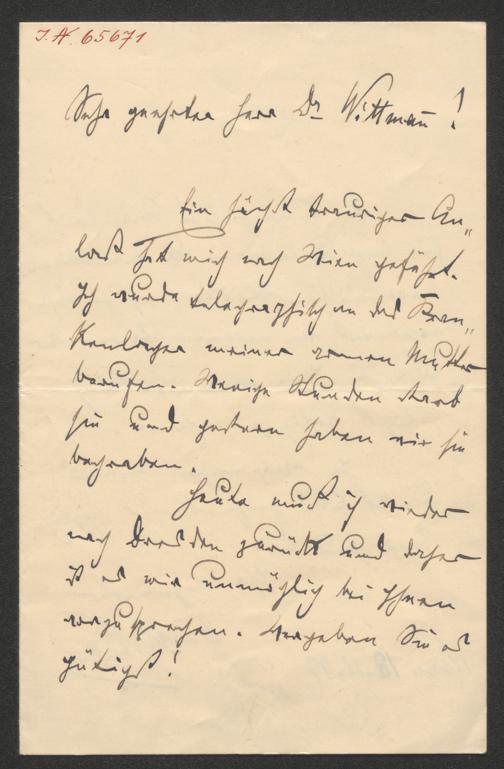 I.N. 65671
Sehr geehrter Herr Dr Wittmann!
Ein höchst trauriger An„
laß hat mich nach Wien geführt.
Ich wurde telegraphisch an das Kran„
kenlager meiner armen Mutter
berufen. Wenige Stunden starb
sie und gestern haben wir sie
begraben.
Heute muß ich wieder
nach Dresden zurück und daher
ist es mir unmöglich bei Ihnen
vorzusprechen. Vergeben Sie es
gütigst!